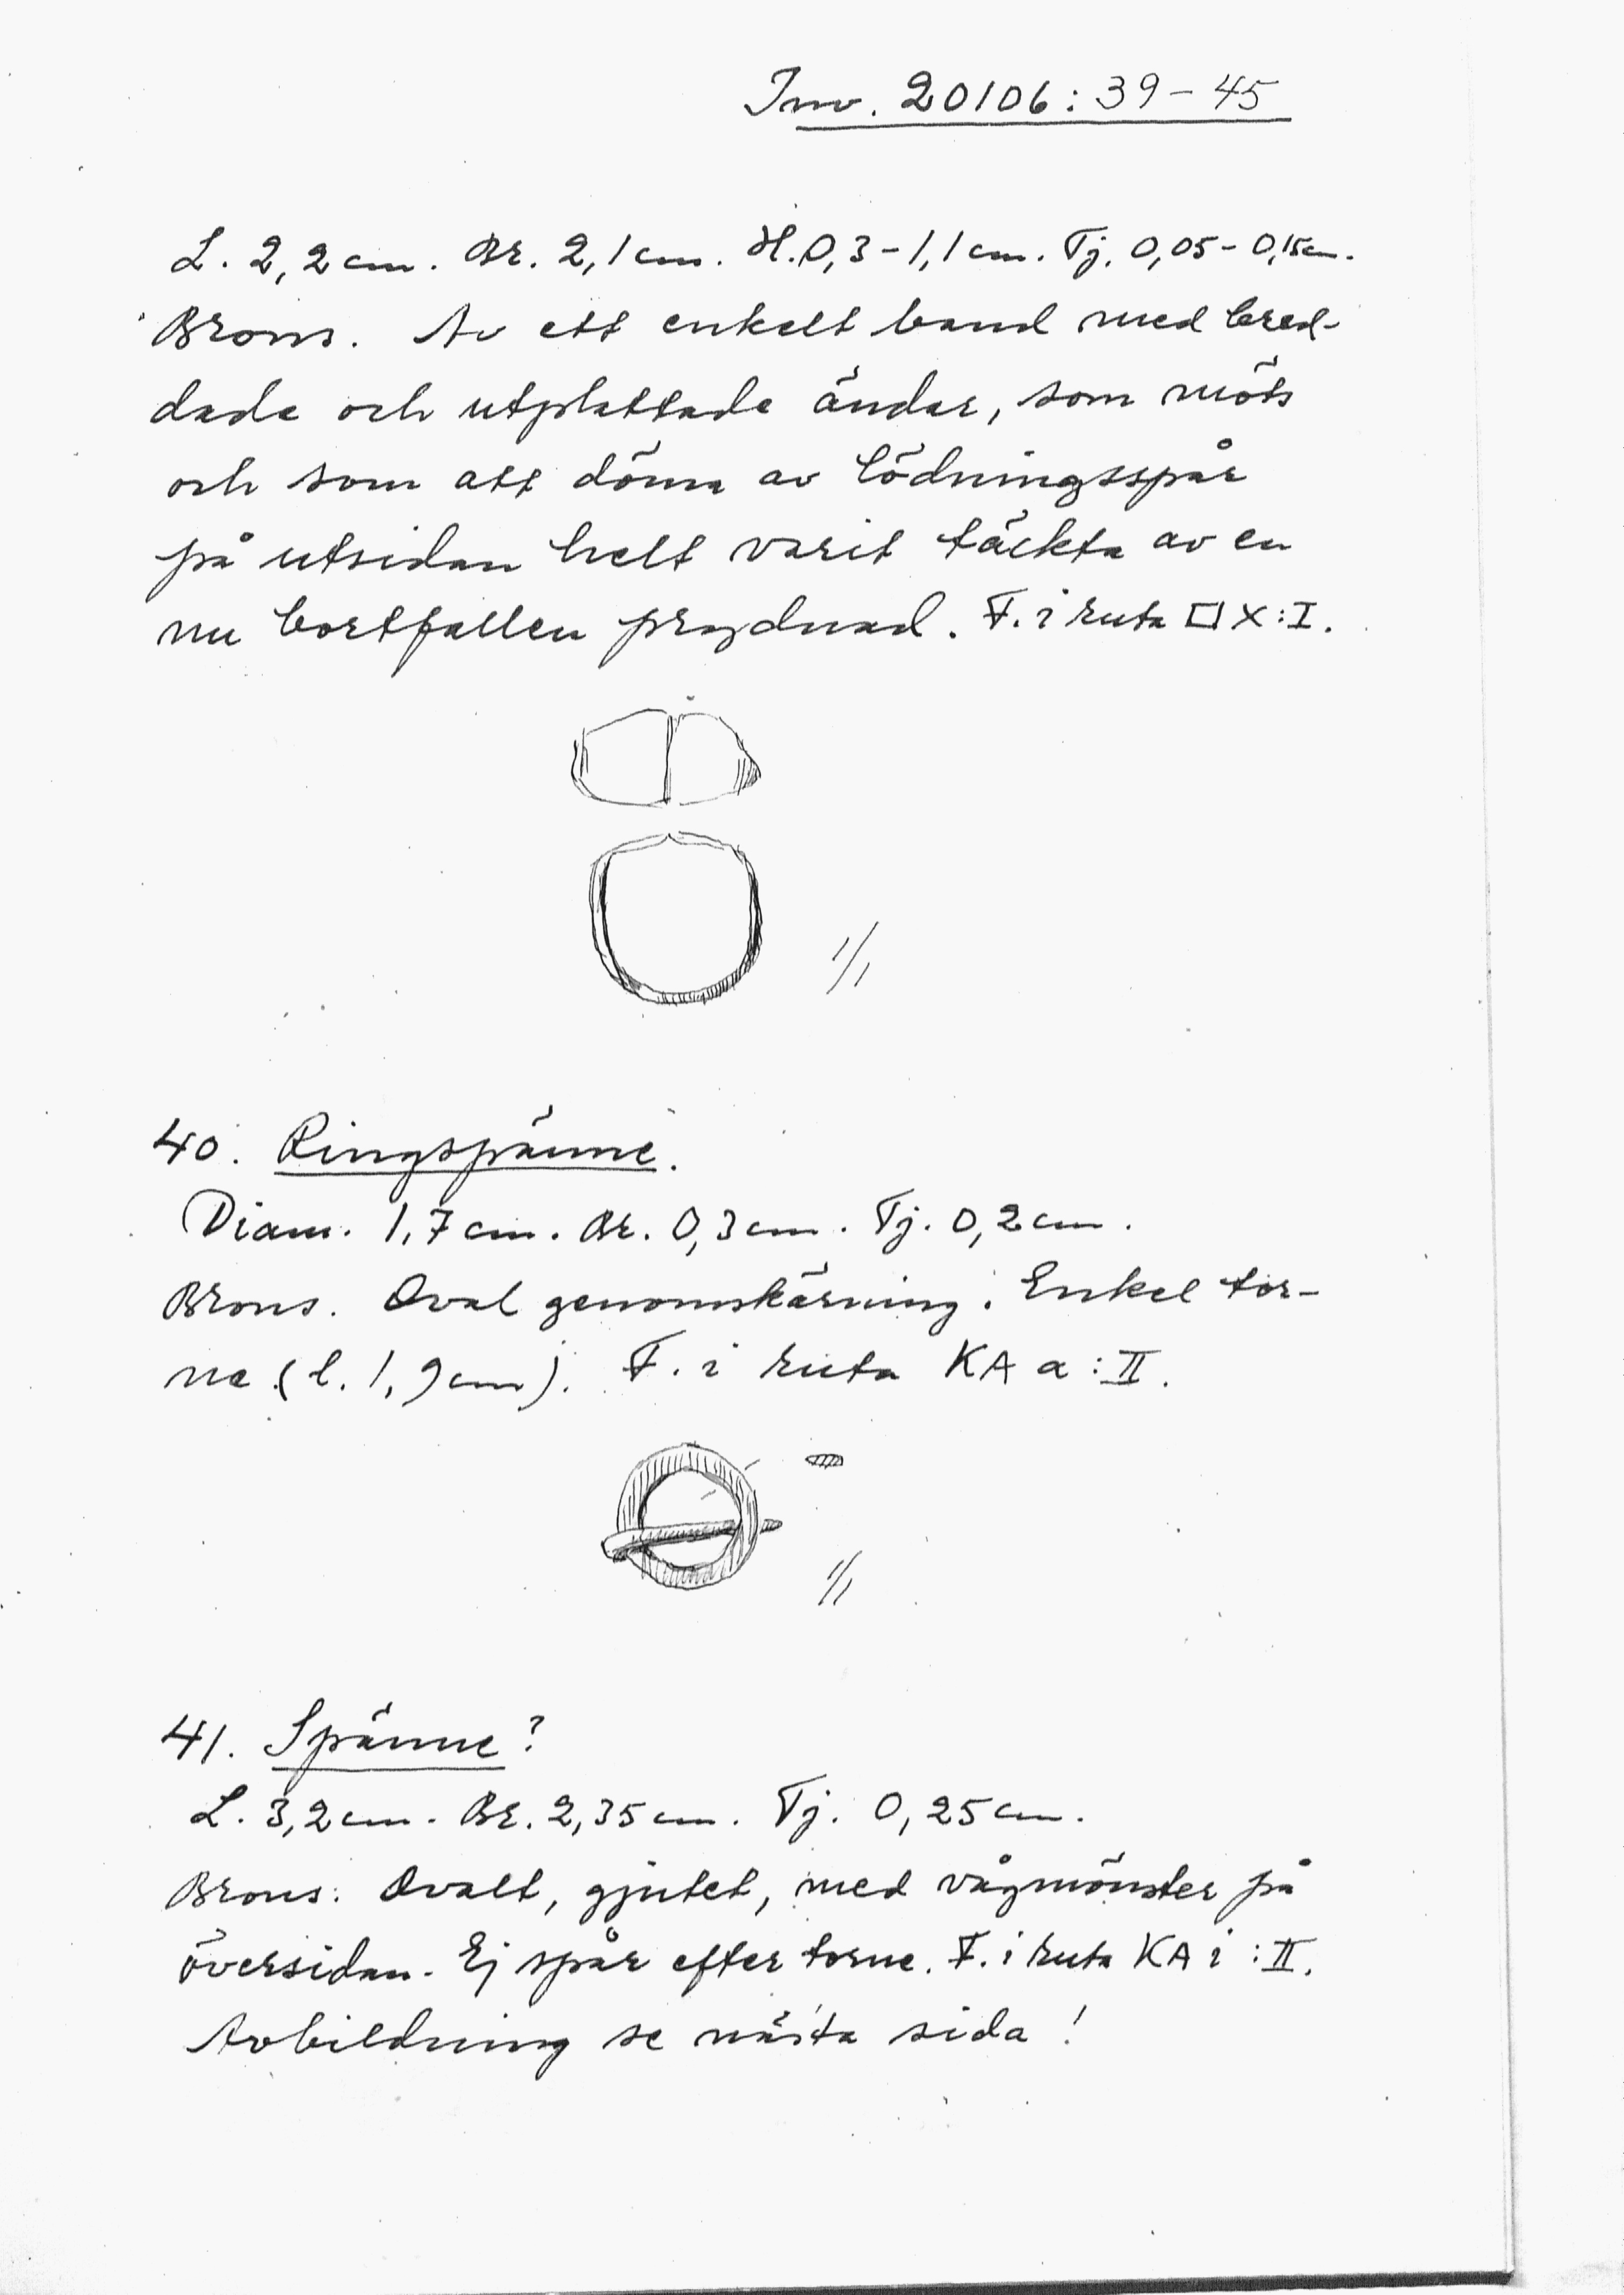 Inv. 20106:39-45
L. 2,2 cm. Br. 2,1 cm. H. 0,3-1,1 cm. Tj. 0,05-0,15 cm.
Brons. Av ett enkelt band med bred-
dade och utplattade ändar, som möts
och som att döma av lödningsspår
på utsidan helt varit täckta av en
nu bortfallen prydnad. F. i ruta □ X:I.
1/1
40. Ringspänne.
Diam. 1,7 cm. Br. 0,3 cm. Tj. 0,2 cm.
Brons. Oval genomskärning. Enkel tor-
ne (l. 1,9 cm). F. i ruta KA a:II.
1/1
41. Spänne?
L. 3,2 cm. Br. 2,35 cm. Tj. 0,25 cm.
Brons. Ovalt, gjutet, med vågmönster på
översidan. Ej spår efter torne. F. i ruta KA i:II.
Avbildning se nästa sida!